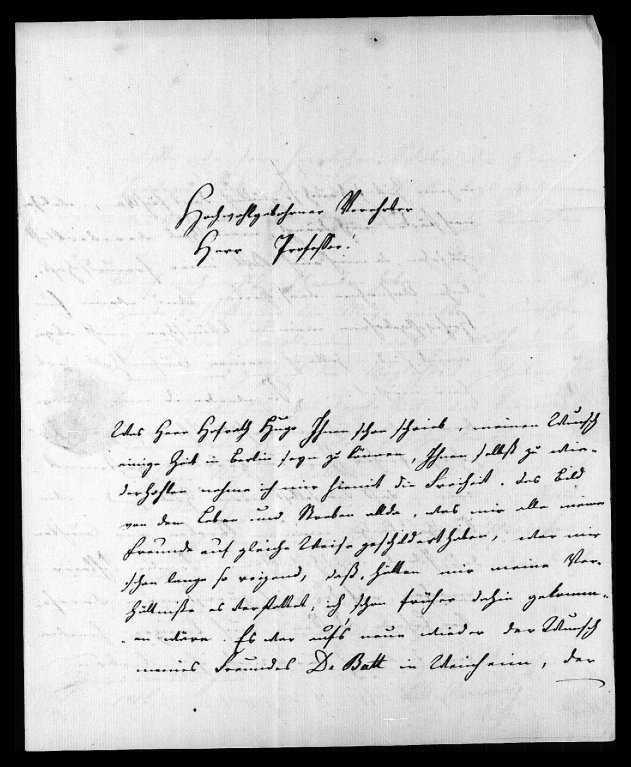 Hochwohlgebohrner Verehrter
Herr Professor!
Was Herr Hofrath Hugo Ihnen schon schrieb, meinen Wunsch
einige Zeit in Berlin seyn zu können, Ihnen selbst zu wie-
derhohlen nehme ich mir hiemit die Freiheit. Das Bild
von dem Leben und Streben allda, das mir alle meine
Freunde auf gleiche Weise geschildert haben, war mir
schon lange so reizend, daß, hätten mir meine Ver-
hältniße es verstattet, ich schon früher dahin gekomm-
en wäre. Es war aufs neue wieder der Wunsch
meines Freundes Dr Batt in Weinheim, der